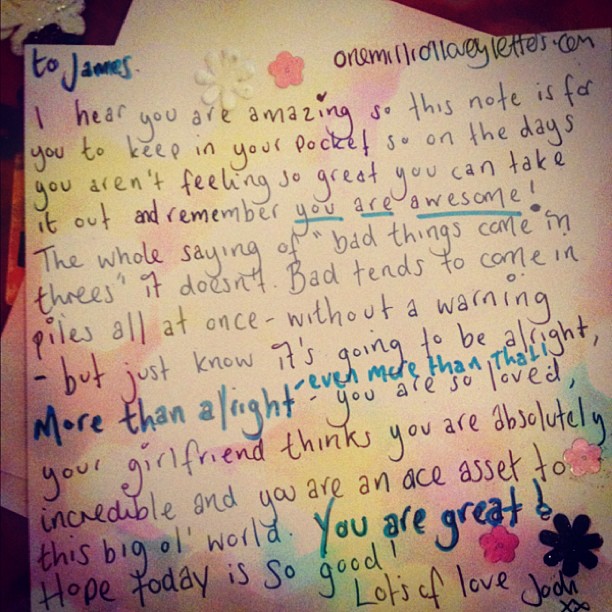 to James.
onemillionlovelyletters.com
I hear you are amazing so this note is for
you to keep in your pocket so on the days
you aren't feeling so great you can take
it out and remember you are awesome!
The whole saying of "bad things come in
threes" it doesn't. Bad tends to come in
piles all at once - without a warning
- but just know it's going to be alright,
More than alright - even more than that!
- you are so loved,
your girlfriend thinks you are absolutely
incredible and you are an ace asset to
this big ol' world. You are great!
Hope today is so good!
Lots of love Jodi
xx